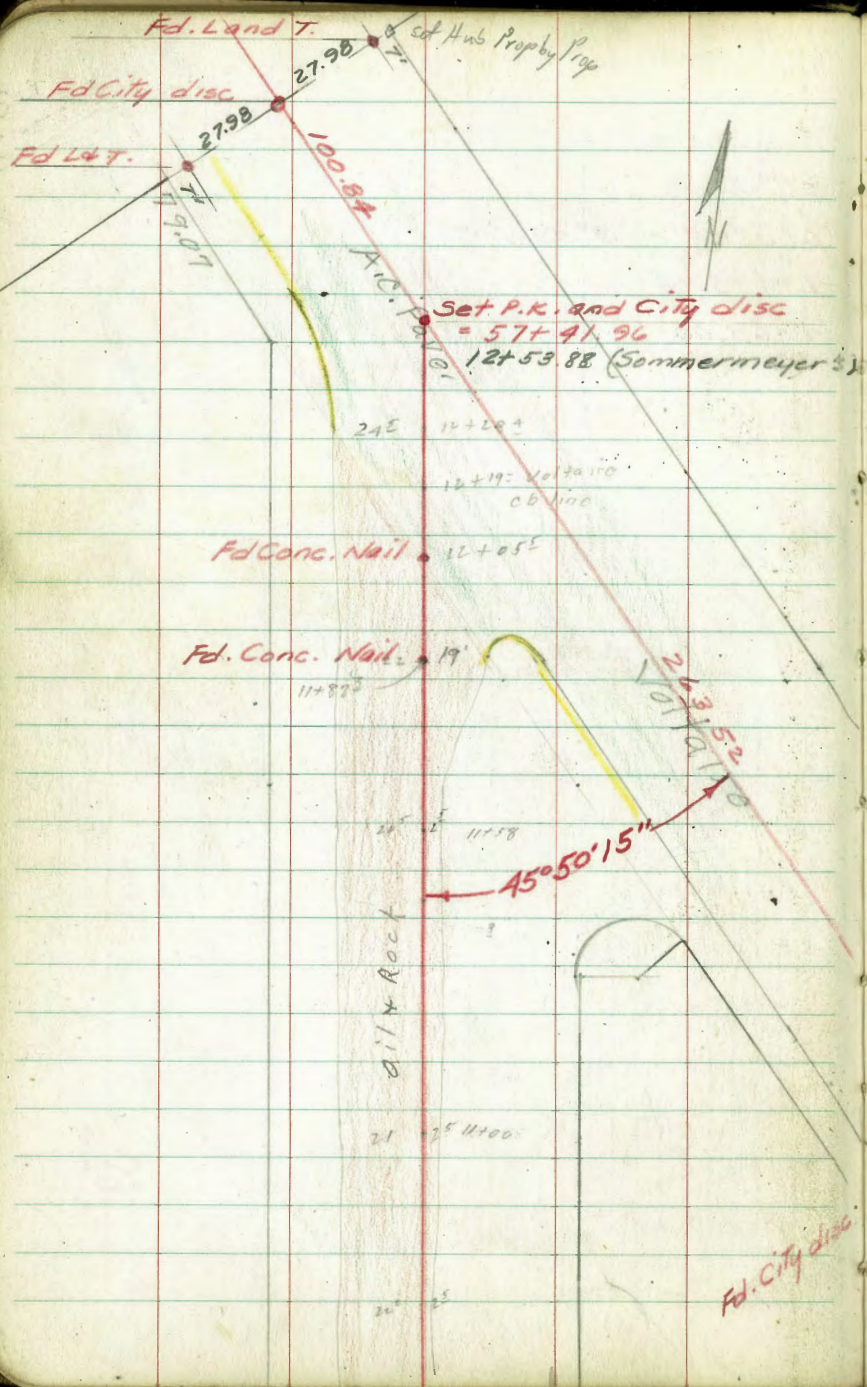 Fd. L and T.
set Hub Prop by Prop
7'
27.98
Fd City disc
27.98
Fd L & T.
7'
79.07
100.84
N
A.C. Paved
Set P.K. and City disc
= 57+41.96
12+53.88 (Sommermeyer
24⁵
12+19= Voltaire
cb line
Fd Conc. Nail
12+05⁵
Fd. Conc. Nail
19'
263.52
Voltaire
11+58
45°50'15"
Oil & Rock
21
2⁵ 11+00
2⁵
Fd. City disc